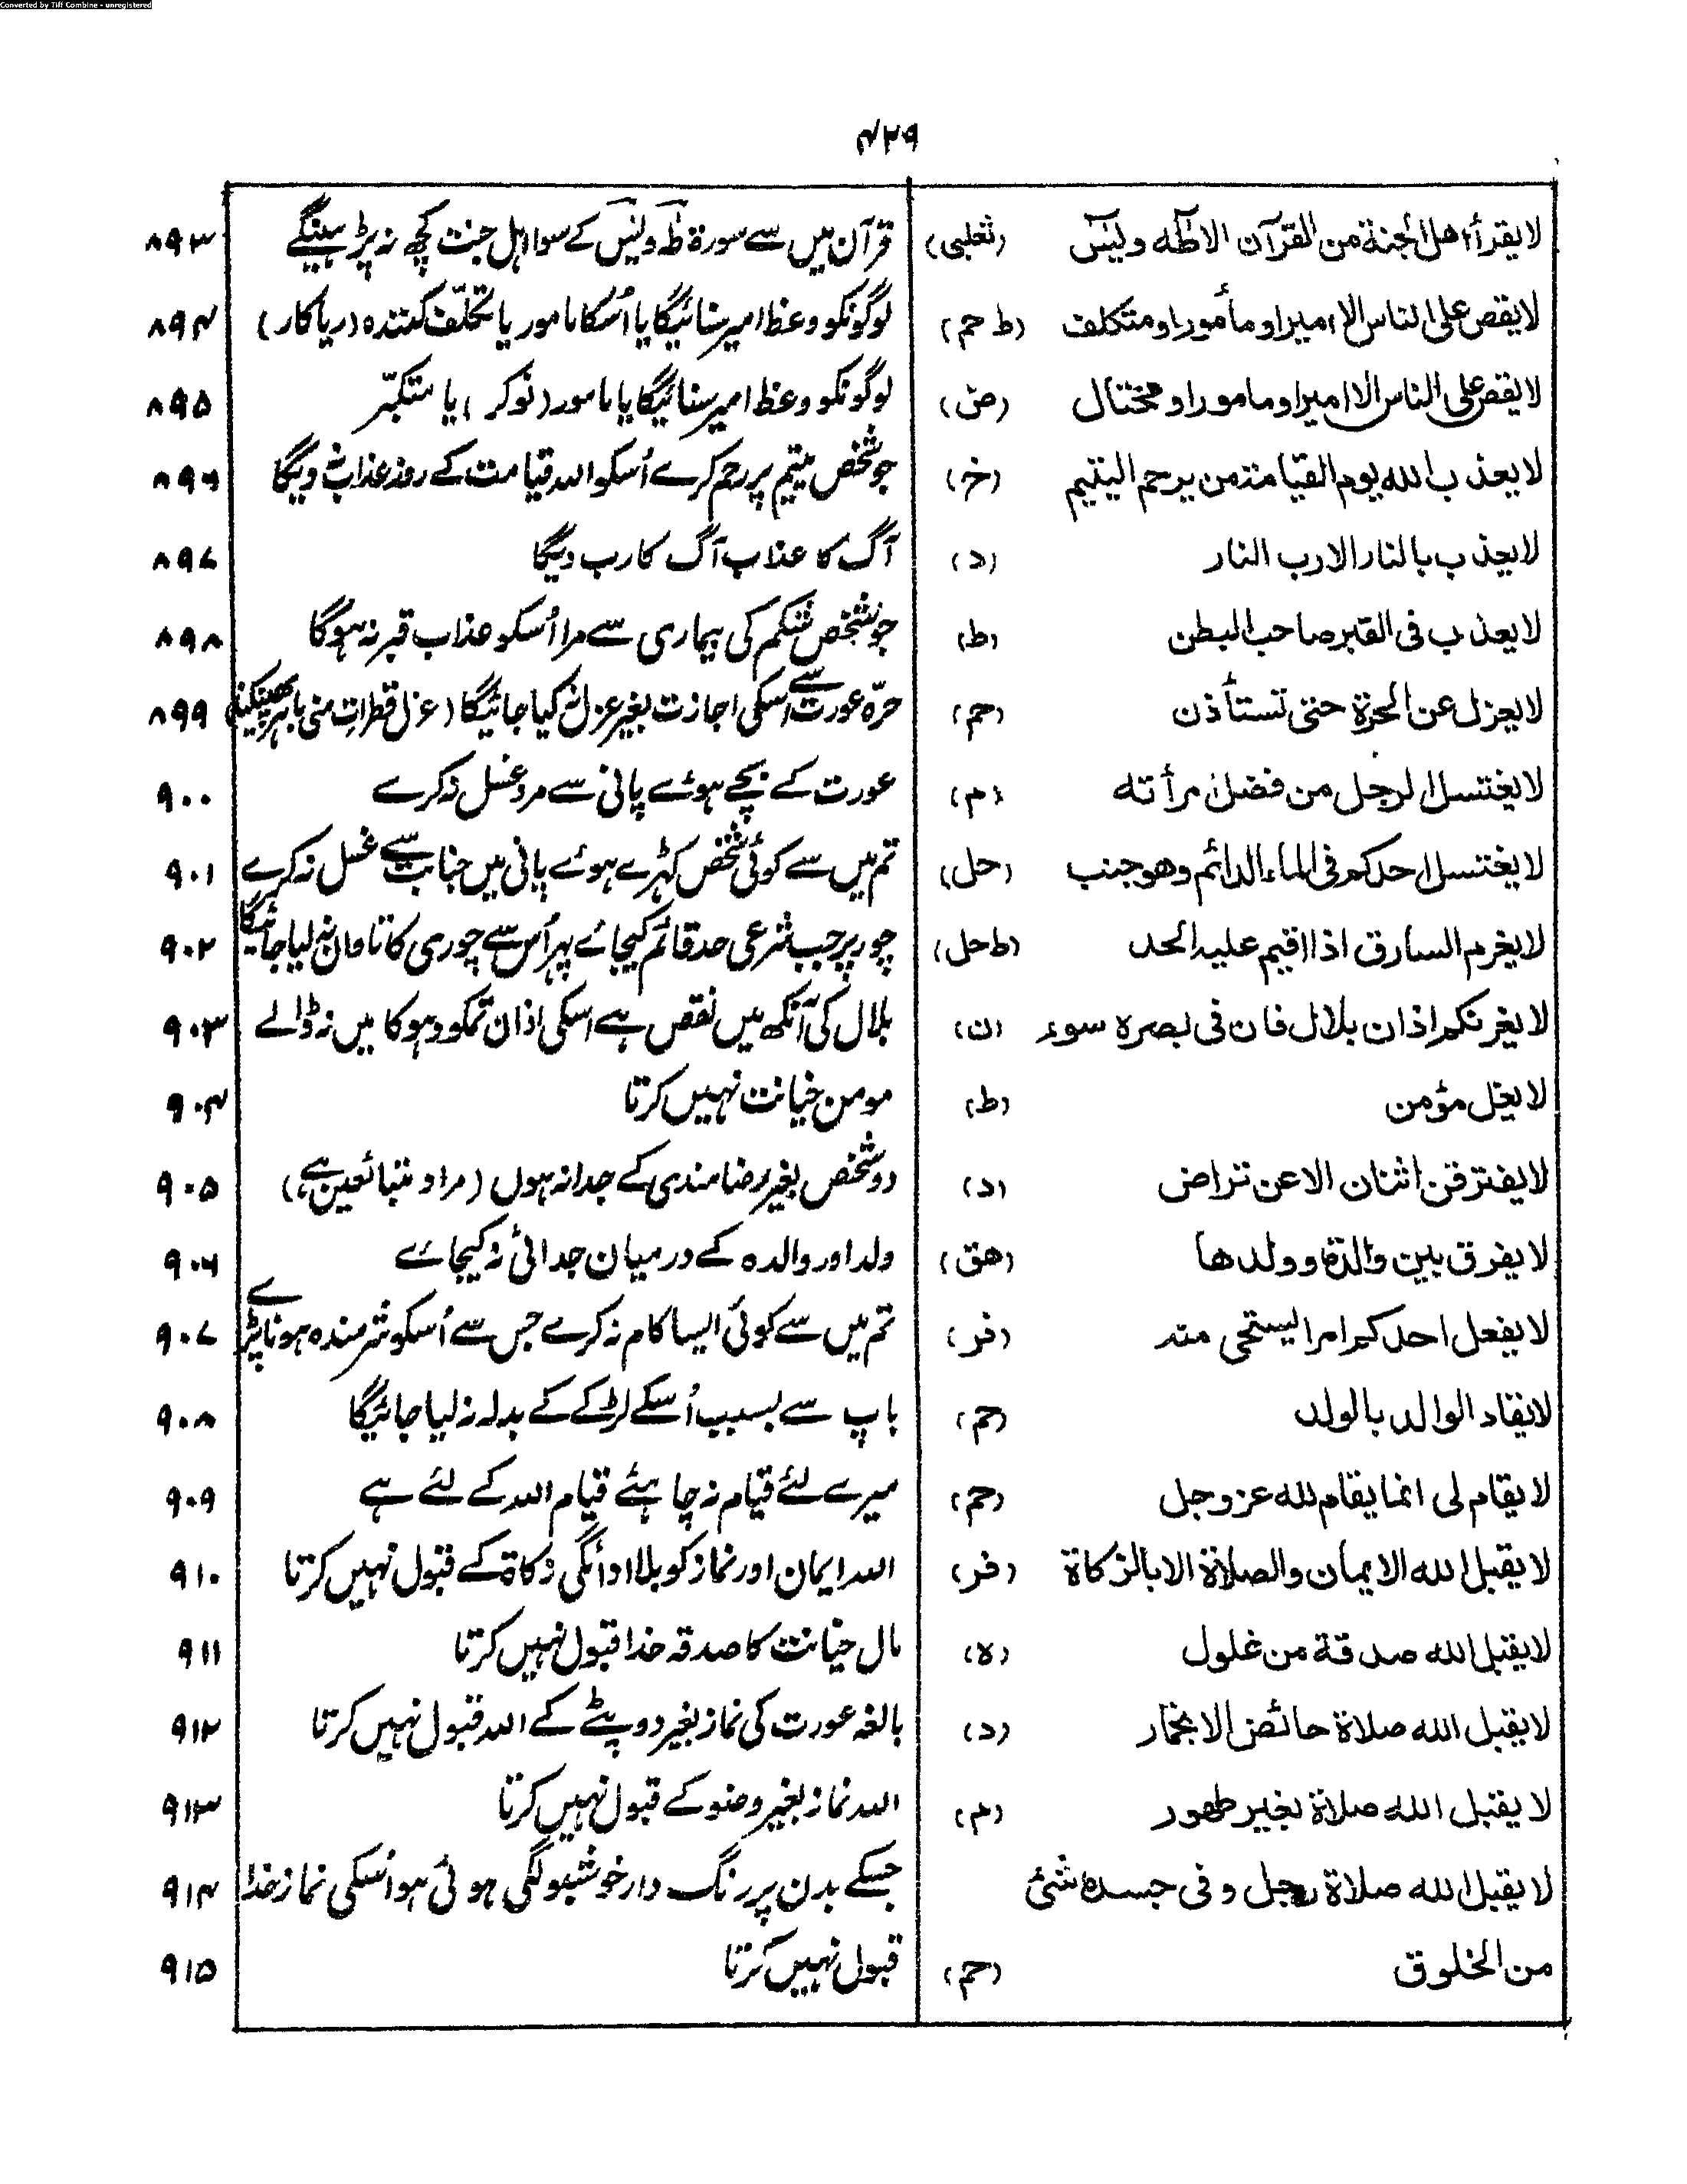 Converted by Tiff Combine - unregistered
۴۲۹
لا یقرأ اهل الجنة من القرآن الا طٰهٰ ویٰسٓ (ثعلبی) قرآن میں سے سورة طٰہٰ ویٰسٓ کے سوا اہل جنت کچھ نہ پڑہینگے ۸۹۳
لا یقص علی الناس الا امیر او مأمور او متکلف (ط حم) لوگونکو وعظ امیر سنائیگا یا اُسکا مامور یا تکلّف کنندہ (ریاکار) ۸۹۴
لا یقص علی الناس الا امیر او مامور او مختال (ض) لوگونکو وعظ امیر سنائیگا یا مامور (نوکر) یا متکبّر ۸۹۵
لا یعذب الله یوم القیامة من یرحم الیتیم (خ) جو شخص یتیم پر رحم کرے اُسکو اللہ قیامت کے روز عذاب نہ دیگا ۸۹۶
لا یعذب بالنار الا رب النار (د) آگ کا عذاب آگ کا رب دیگا ۸۹۷
لا یعذب فی القبر صاحب البطن (ط) جو شخص شکم کی بیماری سے مرا اُسکو عذاب قبر نہ ہوگا ۸۹۸
لا یعزل عن الحرة حتی تستأذن (حم) حرّہ عورت سے اسکی اجازت بغیر عزل نہ کیا جائیگا (عزل قطراتِ منی باہر پھینکنا) ۸۹۹
لا یغتسل الرجل من فضل امرأته (م) عورت کے بچے ہوئے پانی سے مرد غسل نہ کرے ۹۰۰
لا یغتسل احدکم فی الماء الدائم وهو جنب (حل) تم میں سے کوئی شخص کہڑے ہوئے پانی میں جنابت سے غسل نہ کرے ۹۰۱
لا یغرم السارق اذا اقیم علیه الحد (ط حل) چور پر جب شرعی حد قائم کیجائے پہر اُس سے چوری کا تاوان نہ لیا جائیگا ۹۰۲
لا یغرنکم اذان بلال فان فی بصره سوء (ن) بلال کی آنکھ میں نقص ہے اسکی اذان تمکو دہوکا میں نہ ڈالے ۹۰۳
لا یغل مؤمن (ط) مومن خیانت نہیں کرتا ۹۰۴
لا یفترقن اثنان الا عن تراض (د) دو شخص بغیر رضامندی کے جدا نہ ہوں (مراد متبائعین ہے) ۹۰۵
لا یفرق بین والدة وولدها (هق) ولد اور والدہ کے درمیان جدائی نہ کیجائے ۹۰۶
لا یفعل احدکم امرا لیستحی منه (فر) تم میں سے کوئی ایسا کام نہ کرے جس سے اُسکو شرمندہ ہونا پڑے ۹۰۷
لا یقاد الوالد بالولد (حم) باپ سے بسبب اُسکے لڑکے کے بدلہ نہ لیا جائیگا ۹۰۸
لا یقام لی انما یقام لله عز وجل (حم) میرے لئے قیام نہ چاہئے قیام اللہ کے لئے ہے ۹۰۹
لا یقبل الله الایمان والصلاة الا بالزکاة (فر) اللہ ایمان اور نماز کو بلا ادائگی زکاة کے قبول نہیں کرتا ۹۱۰
لا یقبل الله صدقة من غلول (ه) مال خیانت کا صدقہ خدا قبول نہیں کرتا ۹۱۱
لا یقبل الله صلاة حائض الا بخمار (د) بالغہ عورت کی نماز بغیر دوپٹے کے اللہ قبول نہیں کرتا ۹۱۲
لا یقبل الله صلاة بغیر طهور (م) اللہ نماز بغیر وضو کے قبول نہیں کرتا ۹۱۳
لا یقبل الله صلاة رجل وفی جسده شئ جسکے بدن پر رنگ دار خوشبو لگی ہوئی ہو اُسکی نماز خدا ۹۱۴
من الخلوق (حم) قبول نہیں کرتا ۹۱۵